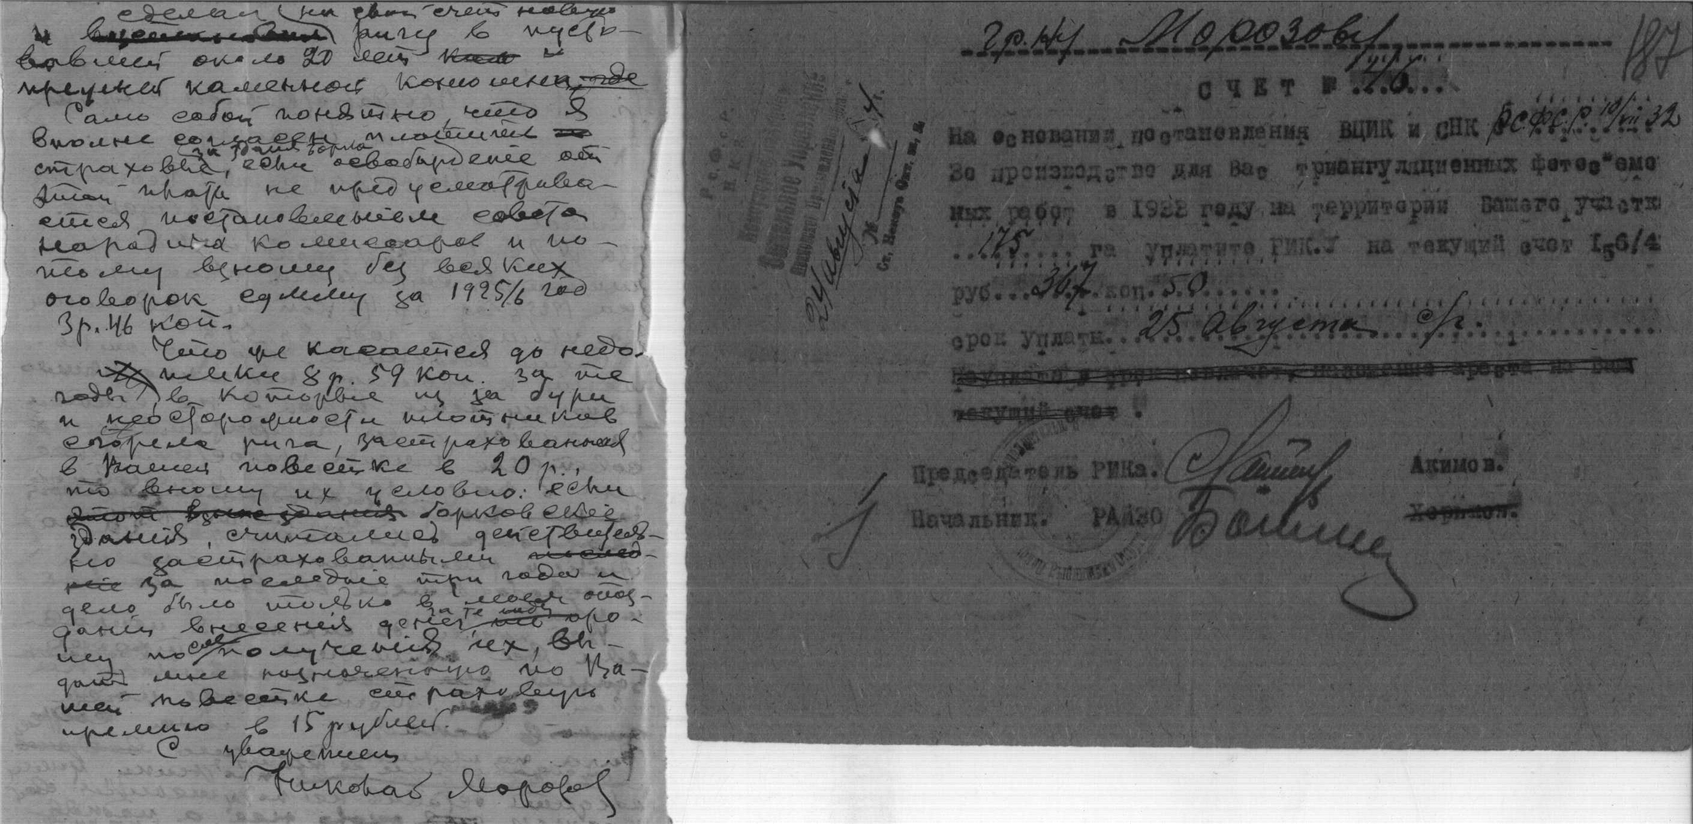 сделал на свой счет новую
и ригу в пусто-
вавшей около 20 лет
прежней каменной конюшне, где
Само собой понятно, что я
вполне согласен платить
за здания Борка
страховые, если освобождение от
этой платы не предусматрива-
ется постановлением совета
народных комиссаров и по-
тому вношу без всяких
оговорок сумму за 1925/6 год
3 р. 46 коп.
Что же касается до недо-
имки 8 р. 59 коп. за те
годы, в которые из за бури
и неосторожности плотников
сгорела рига, застрахованная
в Вашей повестке в 20 р.,
то вношу их условно: если
этот выше здания борковские
здания, считались действитель-
но застрахованными
за последние три года и
дело было только в моем опоз-
дании внесения денег за те годы про-
шу по получения их, вы-
дать мне назначенную по Ва-
шей повестке страховую
премию в 15 рублей.
С уважением
Николай Морозов
гр-ну Морозову
187
СЧЕТ № 46
На основании постановления ВЦИК и СНК РСФСР 10/VIII 32
За производство для Вас триангуляционных фотос'емо
ных работ в 1932 году на территории Вашего участк
175 га уплатите РИК.У на текущий счет 156/4
руб. 367 коп. 50
срок уплаты 25 Августа с/г.
текущий счет .
Председатель РИКа. Акимов.
Начальник. РАЙЗО
Р.С.Ф.С.Р.
Н.К.
24 августа
№